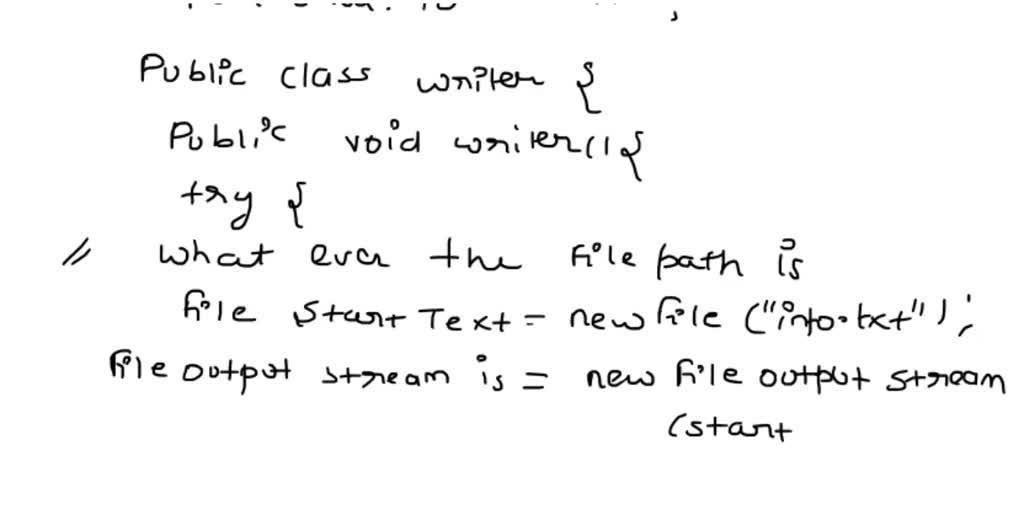 Public class writer {
Public void writer() {
try {
// what ever the file path is
File Start Text = new file ("info.txt");
file output stream is = new file output stream
(start